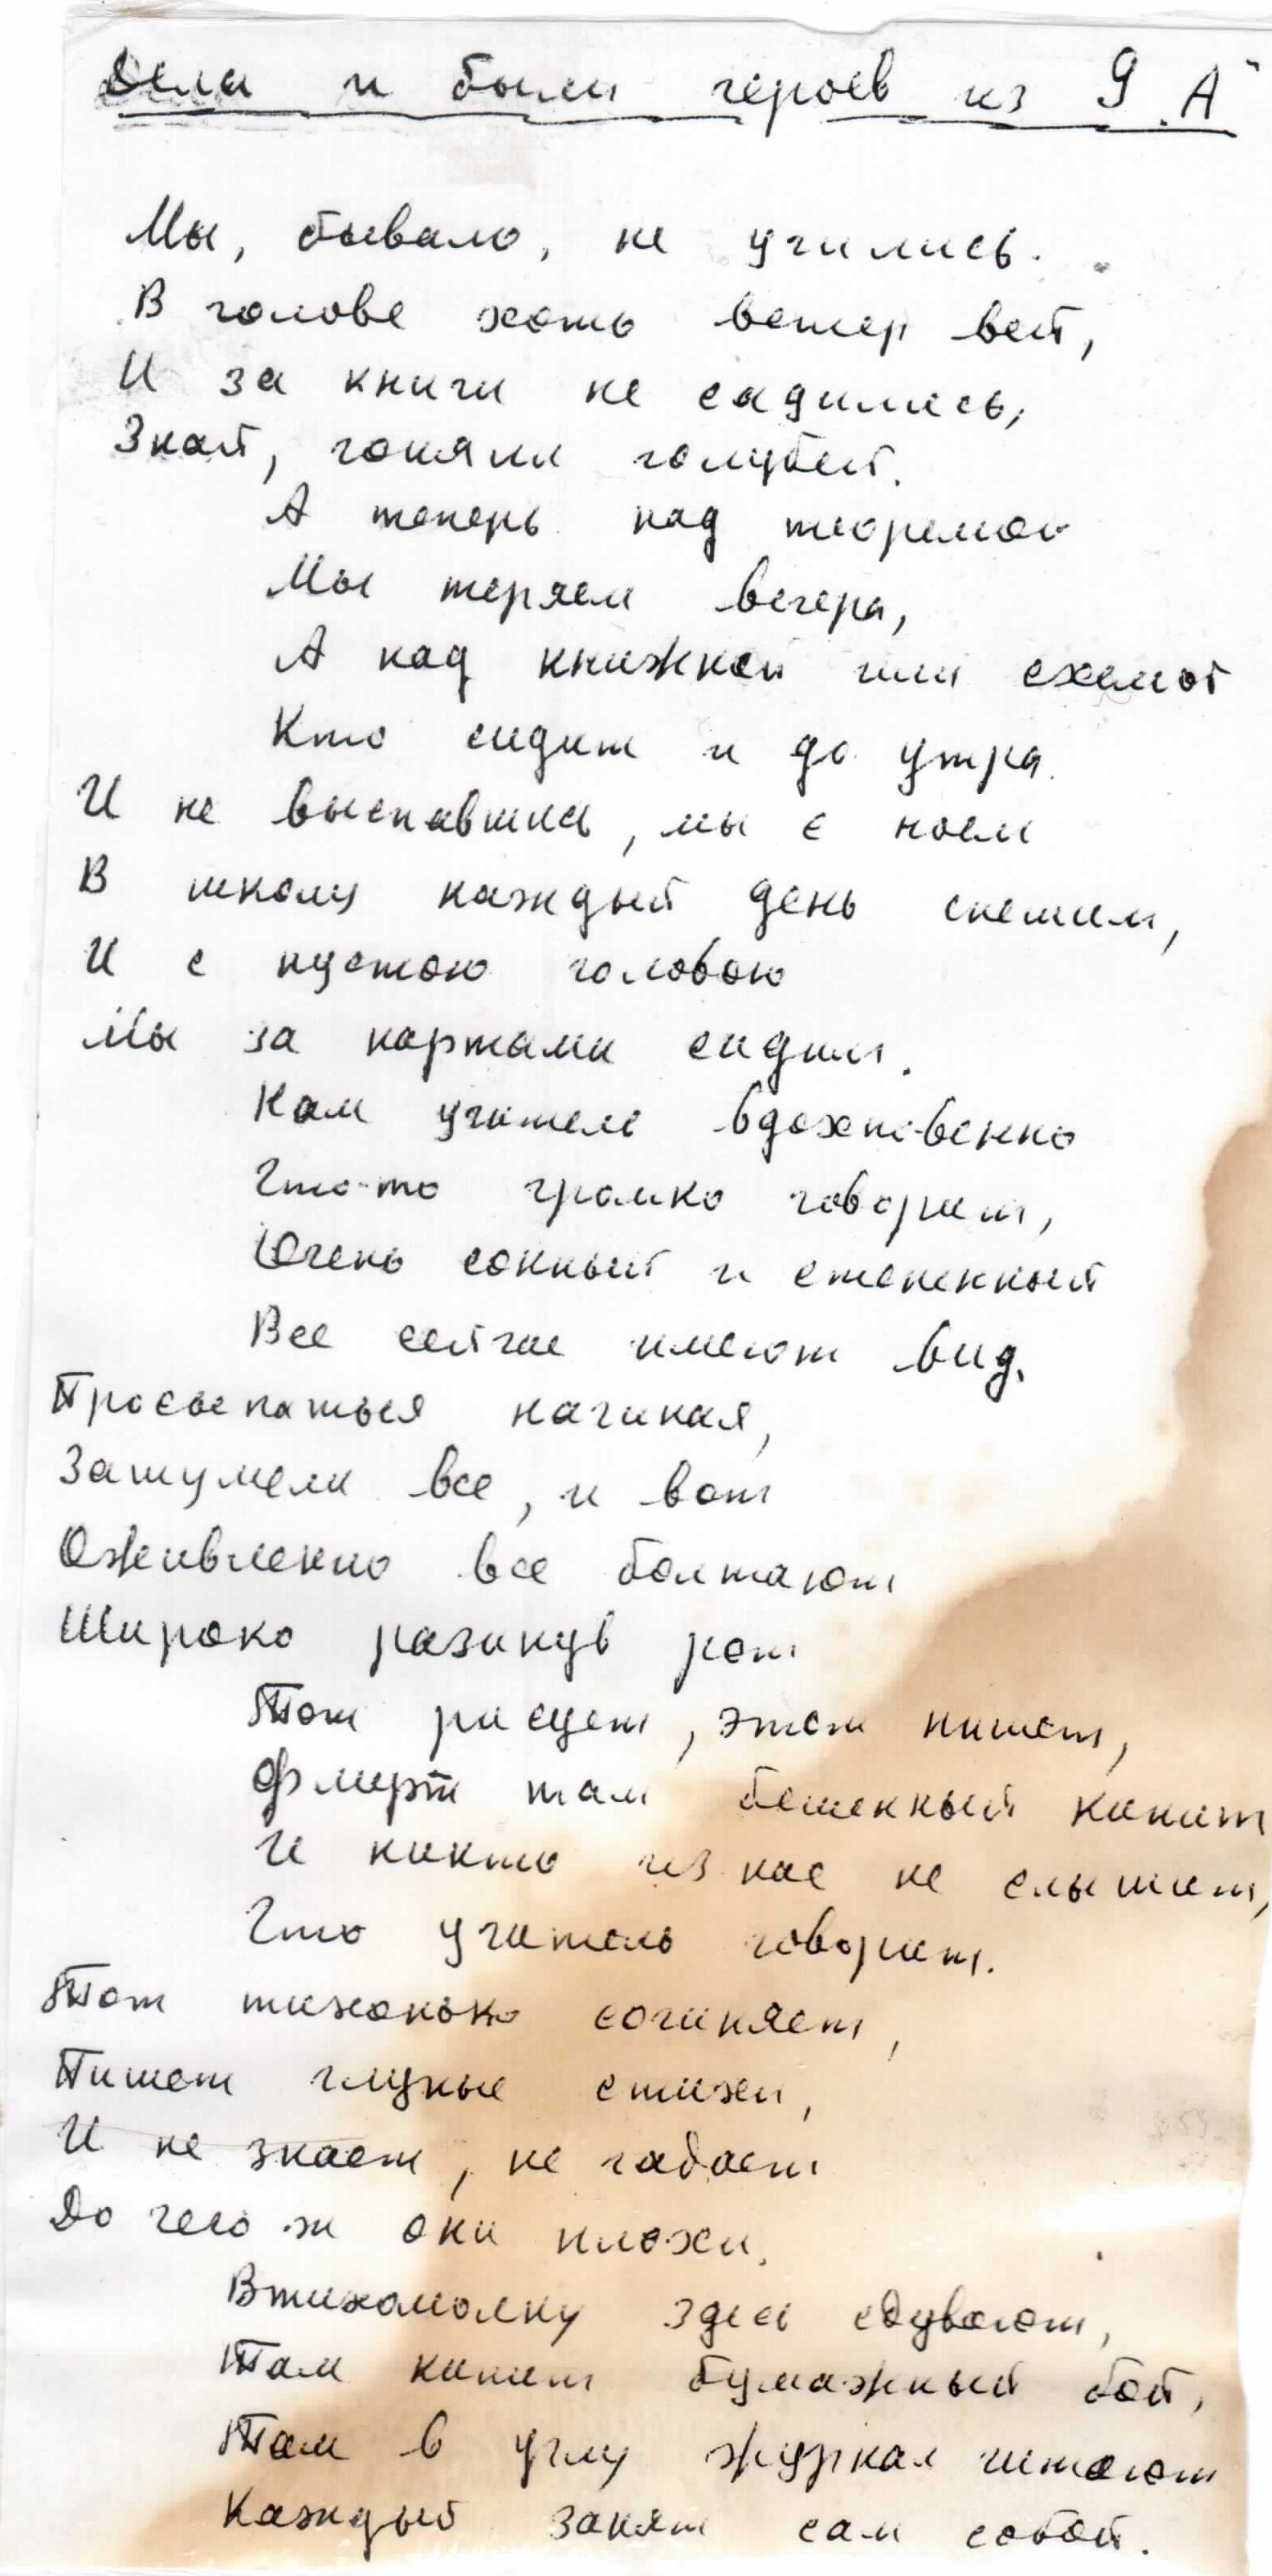 Дела и были героев из 9 "А"
Мы, бывало, не учились.
В голове хоть ветер вей,
И за книги не садились,
Знай, гоняли голубей.
А теперь над теоремой
Мы теряем вечера,
А над книжкой или схемой
Кто сидит и до утра.
И не выспавшись, мы с
В школу каждый день спешим,
И с пустою головою
Мы за партами сидим.
Нам учитель вдохновенно
Что-то громко говорит,
Очень сонный и степенный
Все сейчас имеют вид.
Просыпаться начиная,
Зашумели все, и вот
Оживленно все болтают
Широко разинув рот
Тот рисует, этот пишет,
Флирт там бешенный кипит
И никто из нас не слышит,
Что учитель говорит.
Тот тихонько сочиняет,
Пишет глупые стихи,
И не знает, не гадает
До чего ж они плохи.
Втихомолку здесь сдувают,
Там кипит бумажный бой,
Там в углу журнал читают
Каждый занят сам собой.